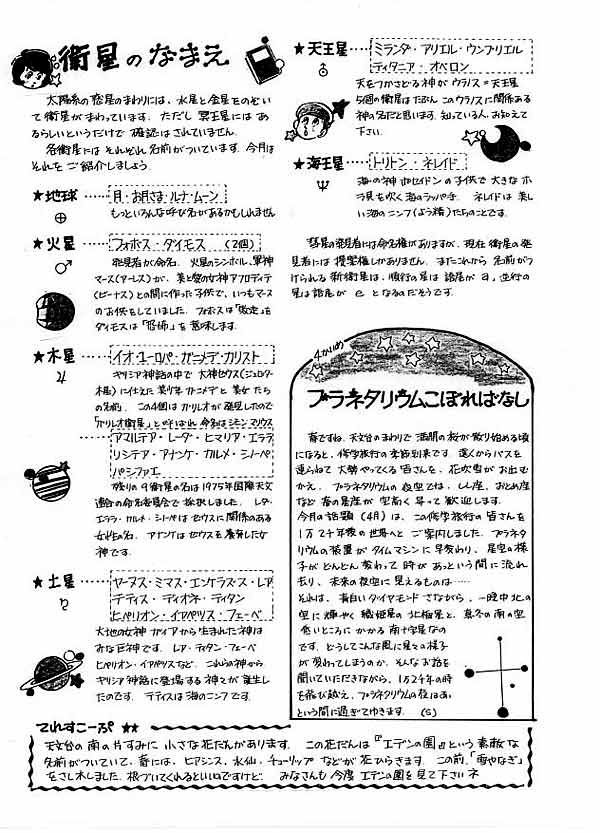 衛星のなまえ
太陽系の惑星のまわりには、水星と金星をのぞい
て衛星がまわっています。ただし冥王星にはあ
るらしいというだけで確認はされていません。
各衛星にはそれぞれ名前がついています。今月は
それをご紹介しましょう
★地球
月・お月さま・ルナ・ムーン
もっといろんな呼び名があるかもしれません
★火星
フォボス・ダイモス (2個)
発見者が命名。火星のシンボル、軍神
マース(アーレス)が、美と愛の女神アフロディテ
(ビーナス)との間に作った子供で、いつもマース
のお供をしていました。フォボスは「敗走」を
ダイモスは「恐怖」を意味します。
★木星
イオ・ユーロパ・ガニメデ・カリスト
ギリシア神話の中で大神ゼウス(ジュピター
木星)に仕えた美少年ガニメデと美女たち
の名前。この4個はガリレオが発見したので
「ガリレオ衛星」と呼ばれ命名はシモン・マリウス
アマルテア・レーダ・ヒマリア・エララ
リシテア・アナンケ・カルメ・シノーペ
パシファエ
残りの9衛星の名は1975年国際天文
連合の命名委員会で採択しました。レダ・
エララ・カルメ・シノーペはゼウスに関係のある
女性の名。アナンケはゼウスを養育した女
神です。
★土星
ヤーヌス・ミマス・エンケラズス・レア
テティス・ディオネ・ティタン
ヒペリオン・イアペツス・フェーベ
大地の女神ガイアから生まれた神は
みな巨神です。レア・ティタン・フェーベ
ヒペリオン・イアペツスなど、これらの神から
ギリシア神話に登場する神々が誕生し
たのです。テティスは海のニンフです。
★天王星
ミランダ・アリエル・ウンブリエル
ティタニア・オベロン
天をつかさどる神がウラノス=天王星
5個の衛星はたぶんこのウラノスに関係ある
神の名だと思います。知っている人、おしえて
下さい。
★海王星
トリトン・ネレイド
海の神ポセイドンの子供で大きなホ
ラ貝を吹く海のラッパ手。ネレイドは美し
い海のニンフ(よう精)たちのことです。
彗星の発見者には命名権がありますが、現在衛星の発
見者には提案権しかありません。またこれから名前がつ
けられる新衛星は、順行の星は語尾がa、逆行の
星は語尾がeとなるのだそうです。
4かいめ
プラネタリウムこぼればなし
春ですね。天文台のまわりで満開の桜が散り始める頃
になると、修学旅行の季節到来です。遠くからバスを
連らねて大勢やってくる皆さんを、花吹雪がお出む
かえ。プラネタリウムの夜空では、しし座、おとめ座
など春の星座が空高く昇って歓迎します。
今月の話題(4月)は、この修学旅行の皆さんを
1万2千年後の世界へとご案内しました。プラネタ
リウムの装置がタイムマシンに早変わり、星空の様
子がどんどん変わって時があっという間に流れ
去り、未来の夜空に見えるものは……
それは、青白いダイヤモンドさながら、一晩中北の
空に輝やく織姫星の北極星と、真冬の南の空
低いところにかかる南十字星なの
です。どうしてこんな風に星々の様子
が変わってしまうのか、そんなお話を
聞いていただきながら、1万2千年の時
を飛び越え、プラネタリウムの夜はあっ
という間に過ぎてゆきます。 (S)
てれすこーぷ ★★
天文台の南の片すみに小さな花だんがあります。この花だんは『エデンの園』という素敵な
名前がついていて、春には、ヒアシンス、水仙、チューリップなどが花ひらきます。この前、「雪やなぎ」
をさし木しました。根づいてくれるといいのですけど。みなさんも今度エデンの園を見て下さいネ